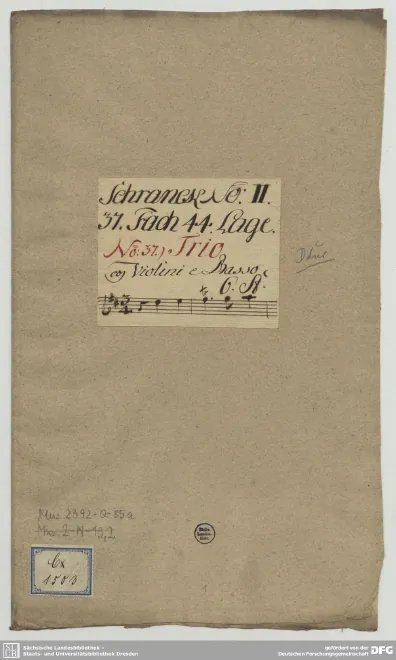 Schranck No: II.
31. Fach 44. Lage.
No: 37.) Trio
Violini e Basso
6. St.
Mus. 2392-Q-35a
Cx
1503
Sächsische Landesbibliothek -
Staats- und Universitätsbibliothek Dresden
gefördert von der
Deutschen Forschungsgemeinschaft
DFG